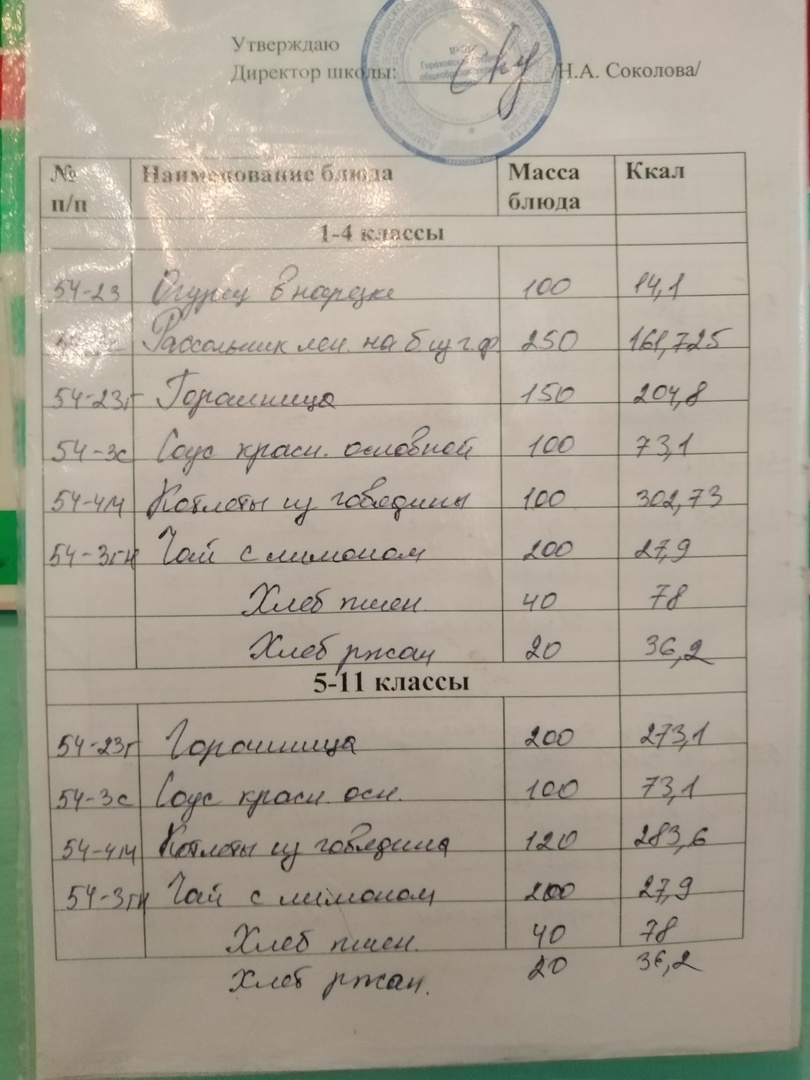 Утверждаю
Директор школы: /Н.А. Соколова/
№ п/п Наименование блюда Масса блюда Ккал
1-4 классы
54-2з Огурец в нарезке 100 14,1
Рассольник лен. на б 250 161,725
54-23г Горошница 150 204,8
54-3с Соус красн. основной 100 73,1
54-4м Котлеты из говядины 100 302,73
54-3гн Чай с лимоном 200 27,9
Хлеб пшен. 40 78
Хлеб ржан 20 36,2
5-11 классы
54-23г Горошница 200 273,1
54-3с Соус красн. осн. 100 73,1
54-4м Котлеты из говядина 120 283,6
54-3гн Чай с лимоном 200 27,9
Хлеб пшен. 40 78
Хлеб ржан. 20 36,2